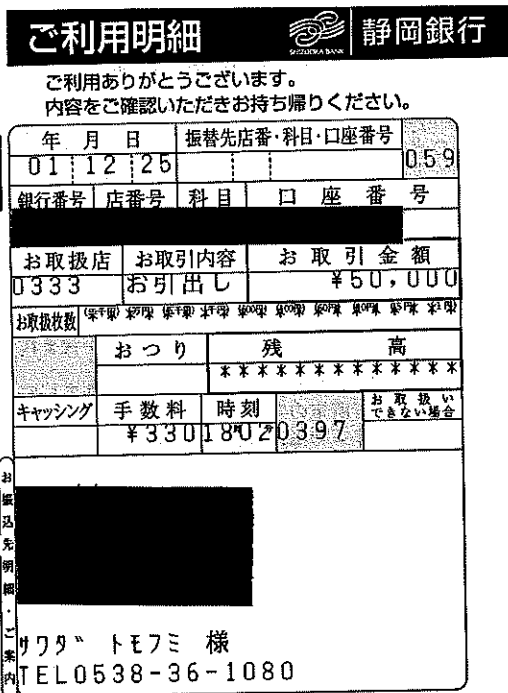 ご利用明細 SHIZUOKA BANK 静岡銀行
ご利用ありがとうございます。
内容をご確認いただきお持ち帰りください。
年 月 日 振替先店番・科目・口座番号
01 12 25 059
銀行番号 店番号 科目 口座番号
お取扱店 お取引内容 お取引金額
0333 お引出し ¥50,000
お取扱枚数
おつり 残高
*************
キャッシング 手数料 時刻 お取扱いできない場合
¥330 18時02分 0397
お振込先明細・ご案内
サワダ トモフミ 様
TEL0538-36-1080